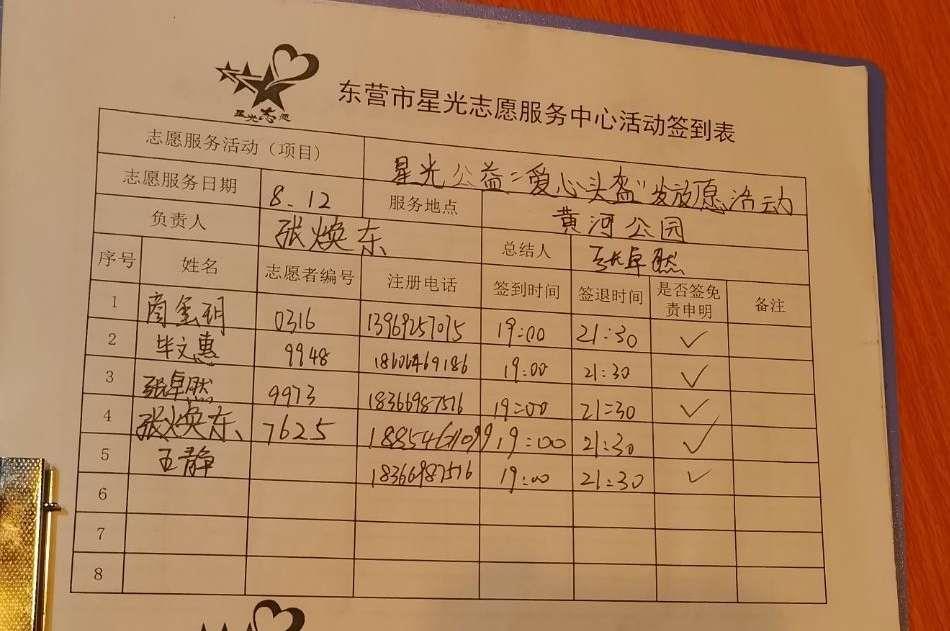 星光志愿
东营市星光志愿服务中心活动签到表
志愿服务活动（项目） 星光公益："爱心头盔"发放愿活动
志愿服务日期 8.12 服务地点 黄河公园
负责人 张焕东 总结人 张卓然
序号 姓名 志愿者编号 注册电话 签到时间 签退时间 是否签免责申明 备注
1 0316 13969257075 19:00 21:30 ✓
2 毕文惠 9948 18606469186 19:00 21:30 ✓
3 张卓然 9973 18366987516 19:00 21:30 ✓
4 张焕东 7625 18854661099 19:00 21:30 ✓
5 王静 18366987516 19:00 21:30 ✓
6
7
8